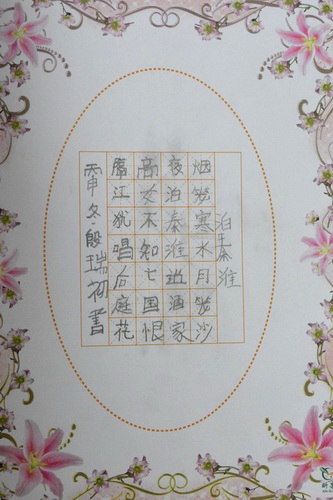 泊秦淮
烟笼寒水月笼沙
夜泊秦淮近酒家
商女不知亡国恨
隔江犹唱后庭花
冬·殷瑞初書